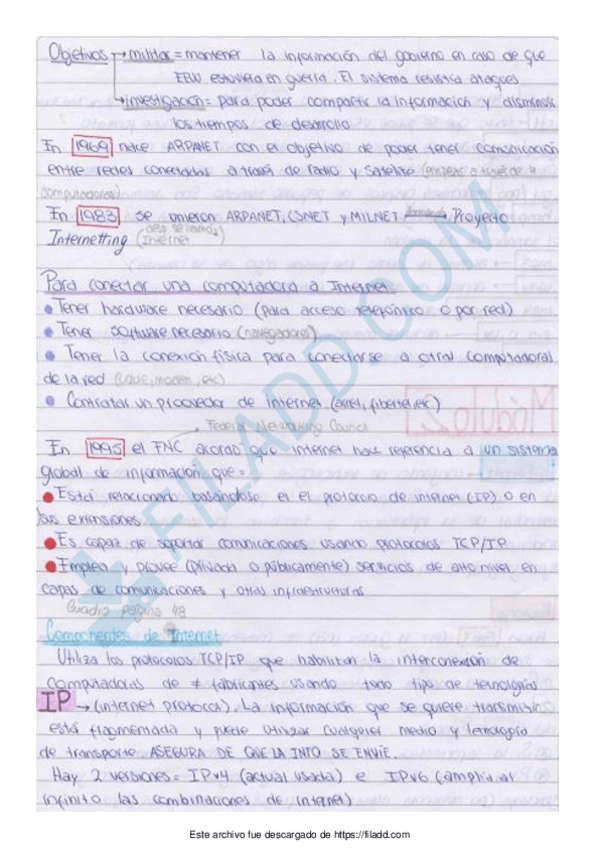 Objetivos → militar = mantener la información del gobierno en caso de que
EEUU estuviera en guerra. El sistema resistía ataques
→ investigación = para poder compartir la información y disminuir
los tiempos de desarrollo
En 1969 nace ARPANET con el objetivo de poder tener comunicación
entre redes conectadas a través de radio y satelite (empezó a través de 4
computadoras)
En 1983 se unieron ARPANET, CSNET y MILNET → Proyecto
Internetting (desp se llamó Internet)
Para conectar una computadora a Internet
• Tener hardware necesario (para acceso telefónico o por red)
• Tener software necesario (navegadores)
• Tener la conexión física para conectarse a otras computadoras
de la red (cable, modem, etc)
• Contratar un proveedor de internet (arnet, fibertel, etc)
Federal Networking Council
En 1995 el FNC acordó que internet hace referencia a un sistema
global de información que =
• Está relacionado basándose en el protocolo de internet (IP) o en
sus extensiones
• Es capaz de soportar comunicaciones usando protocolos TCP/IP
• Emplea y provee (privada o públicamente) servicios de alto nivel en
capas de comunicaciones y otras infraestructuras
Cuadro página 48
Componentes de Internet
Utiliza los protocolos TCP/IP que habilitan la interconexión de
computadoras de ≠ fabricantes usando todo tipo de tecnologías
IP → (internet protocol). La información que se quiere transmitir
está fragmentada y puede utilizar cualquier medio y tecnología
de transporte. ASEGURA DE QUE LA INFO SE ENVIE.
Hay 2 versiones = IPv4 (actual usada) e IPv6 (amplia al
infinito las combinaciones de internet)
Módulo 2
FILADD.COM
Este archivo fue descargado de https://filadd.com